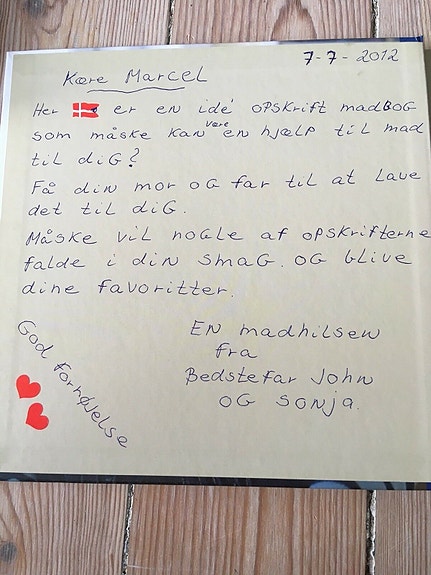 7-7-2012
Kære Marcel
Her 🇩🇰 er en idé opskrift madbog
som måske kan være en hjælp til mad
til dig?
Få din mor og far til at lave
det til dig.
Måske vil nogle af opskrifterne
falde i din smag. og blive
dine favoritter.
En madhilsen
fra
Bedstefar John
og Sonja.
God fornøjelse